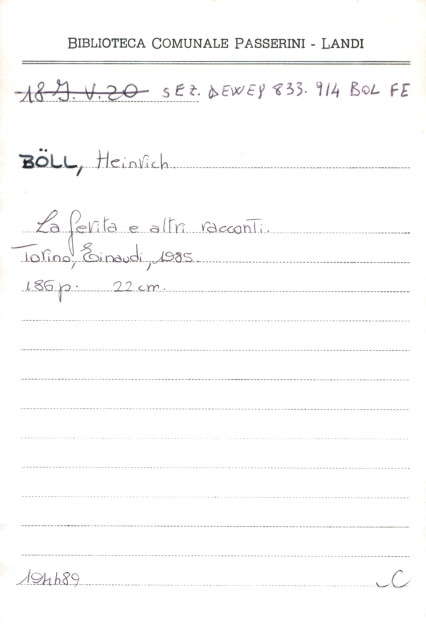 BIBLIOTECA COMUNALE PASSERINI - LANDI
18 J. V. 20 SEZ. DEWEY 833.914 BOL FE
BÖLL, Heinrich
La ferita e altri racconti.
Torino, Einaudi, 1985.
186 p. 22 cm.
C